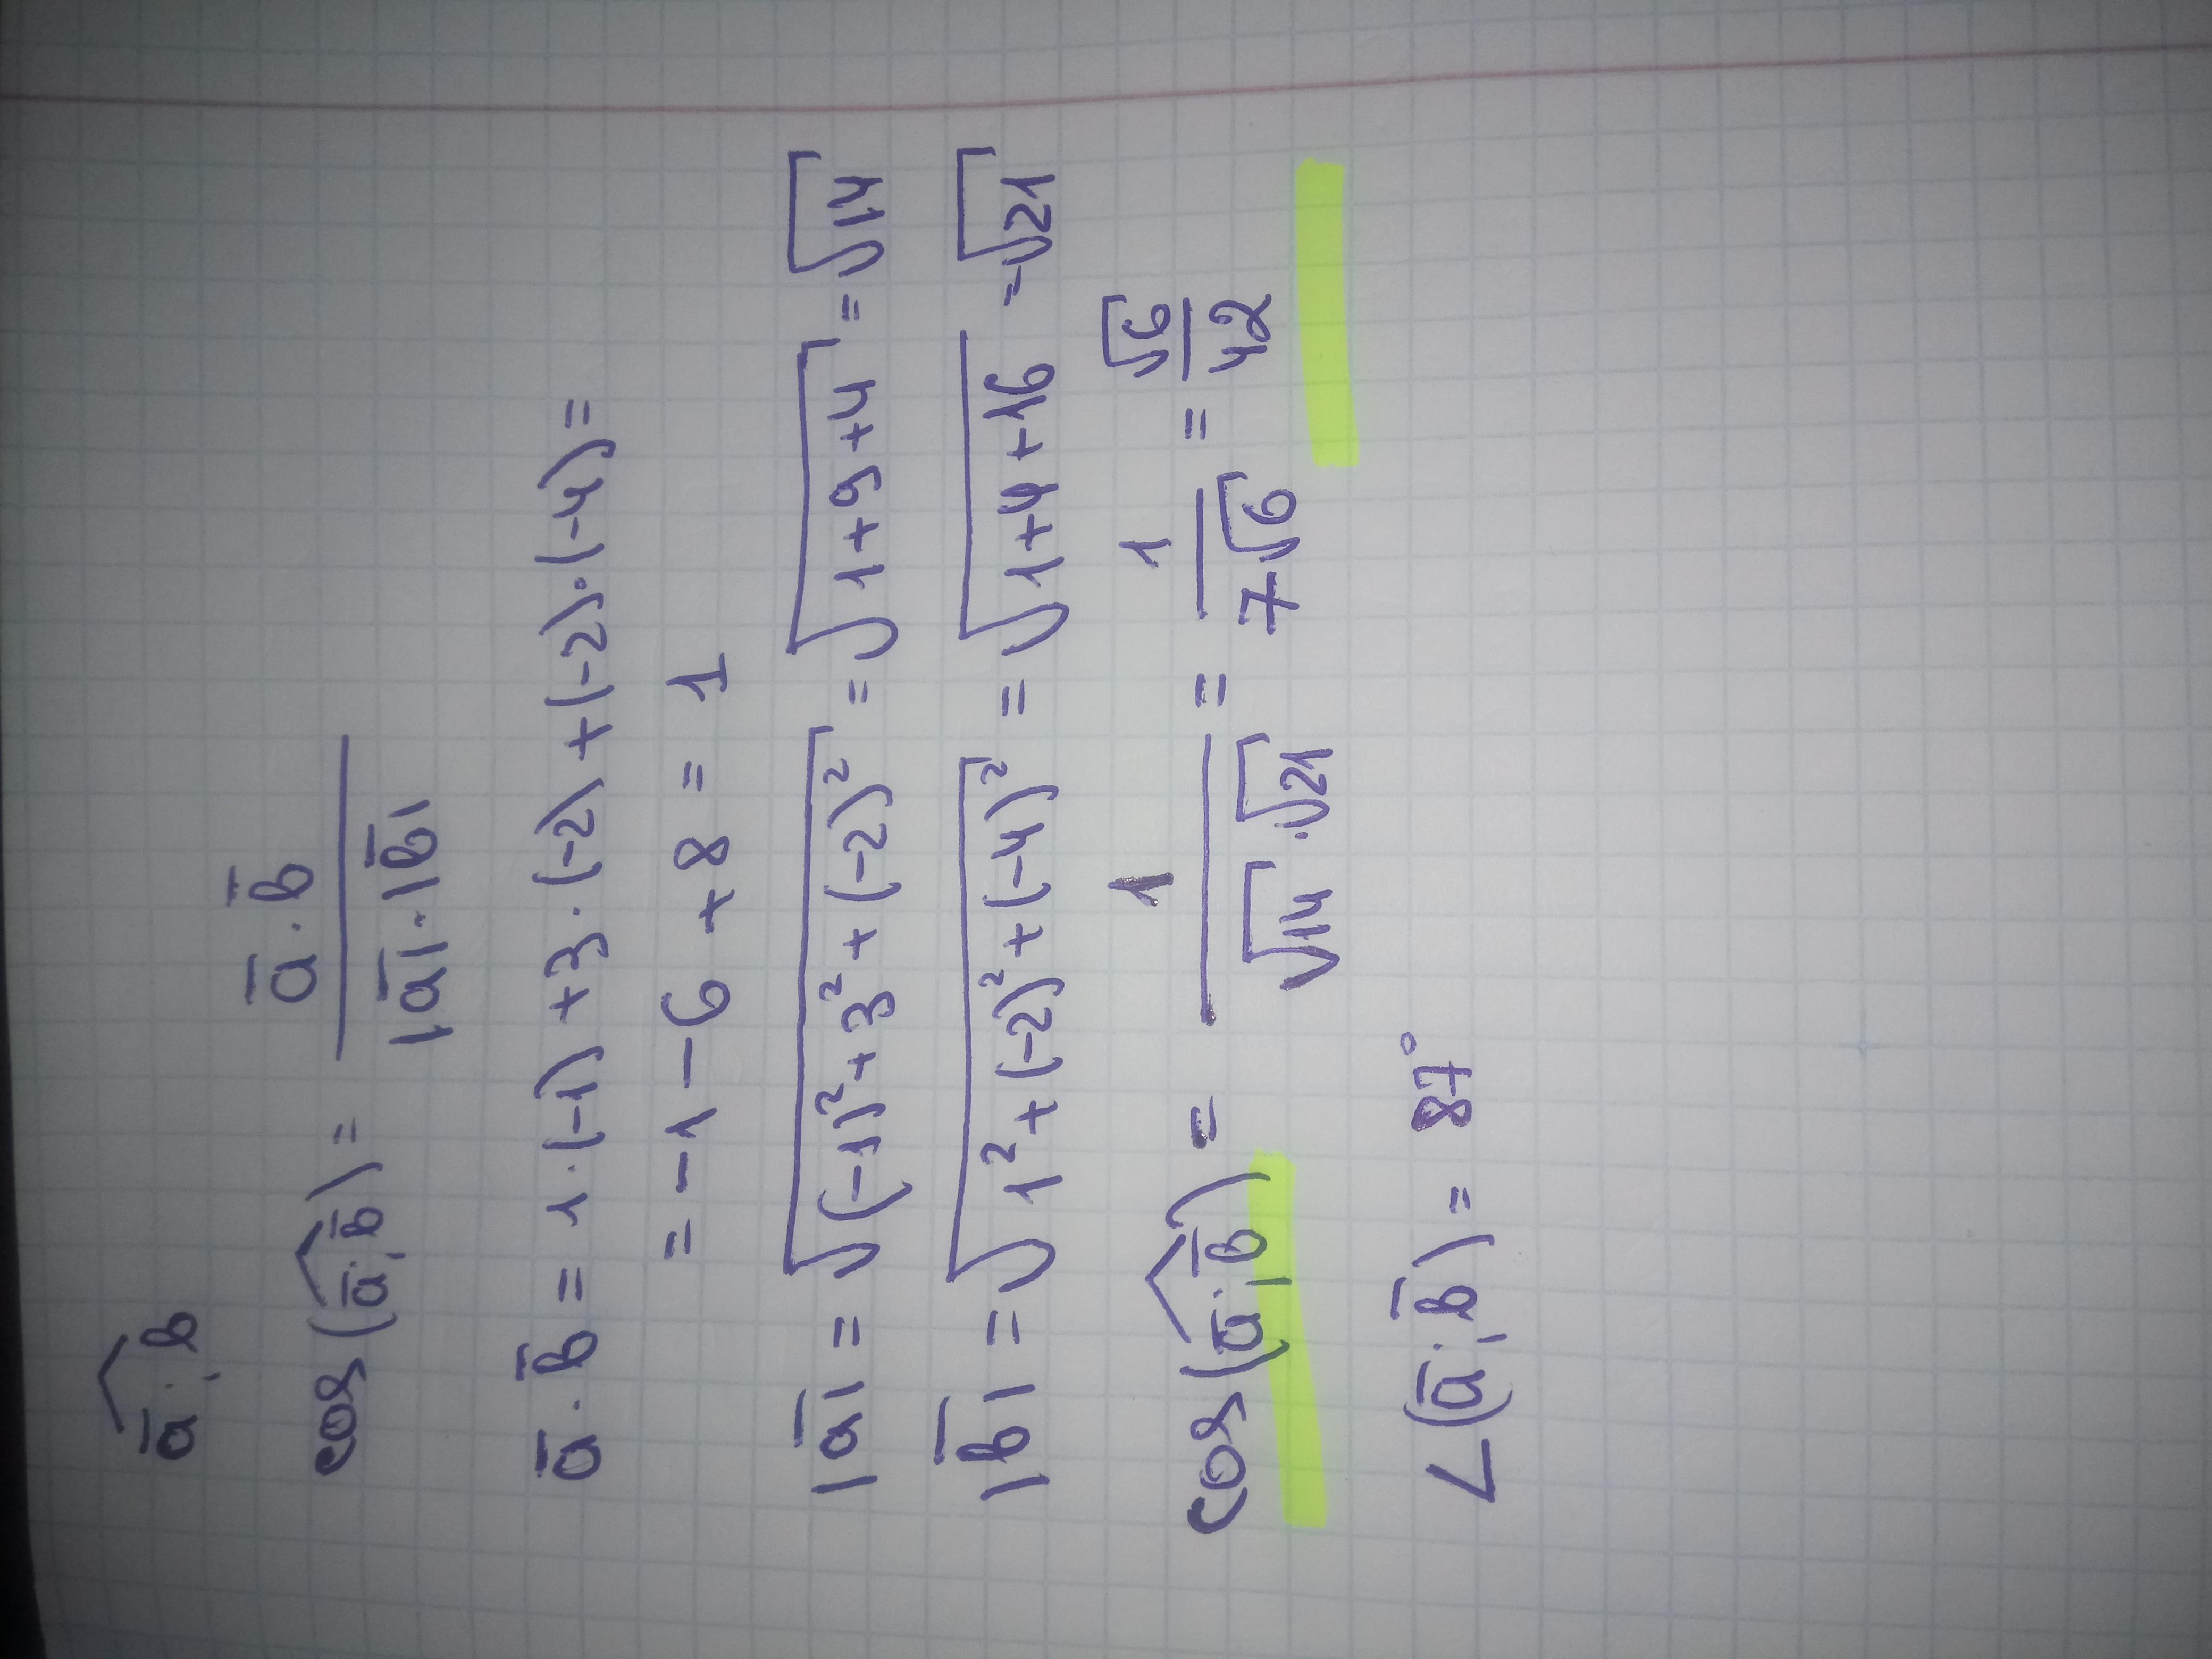 a̅; b
cos(a̅; b̅) = a̅ · b̅ / |a̅| · |b̅|
a̅ · b̅ = 1 · (-1) + 3 · (-2) + (-2) · (-4) =
= -1 - 6 + 8 = 1
|a̅| = √((-1)² + 3² + (-2)²) = √(1+9+4) = √14
|b̅| = √(1² + (-2)² + (-4)²) = √(1+4+16) = √21
cos(a̅; b̅) = 1 / √14 · √21 = 1 / 7√6 = √6 / 42
∠(a̅; b̅) = 87°